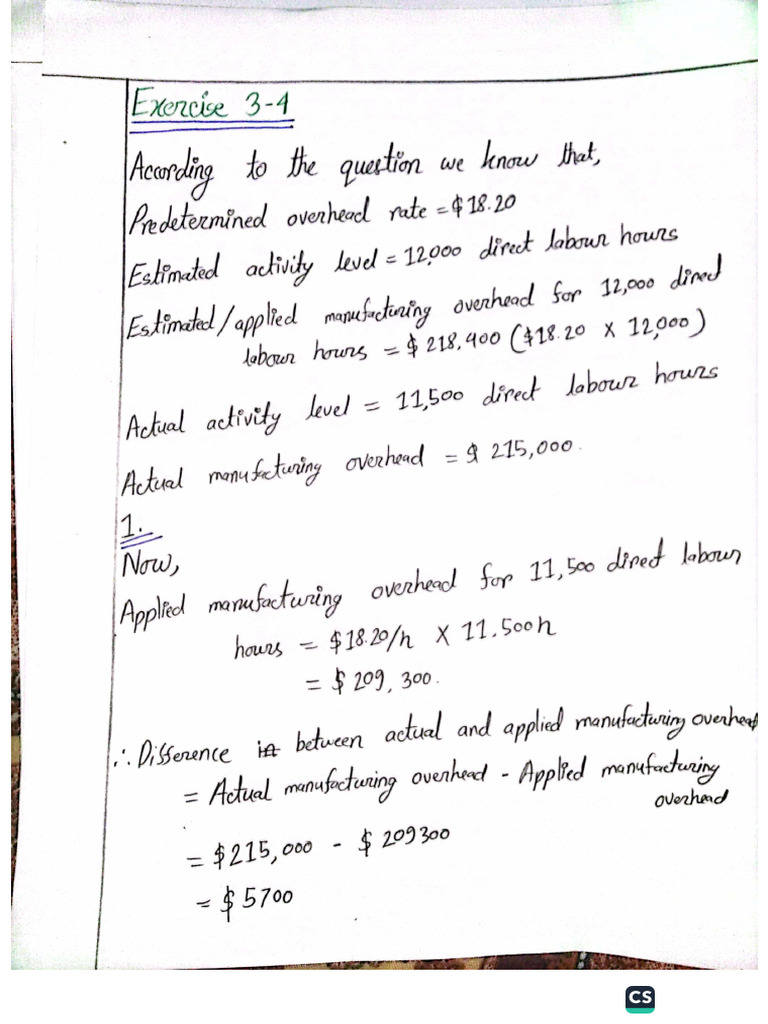 Exercise 3-4
According to the question we know that,
Predetermined overhead rate = $18.20
Estimated activity level = 12,000 direct labour hours
Estimated/applied manufacturing overhead for 12,000 direct
labour hours = $ 218,400 ($18.20 X 12,000)
Actual activity level = 11,500 direct labour hours
Actual manufacturing overhead = $ 215,000.
1.
Now,
Applied manufacturing overhead for 11,500 direct labour
hours = $18.20/h X 11.500h
= $ 209,300.
∴ Difference in between actual and applied manufacturing overhead
= Actual manufacturing overhead - Applied manufacturing
overhead
= $215,000 - $ 209300
= $ 5700
CS